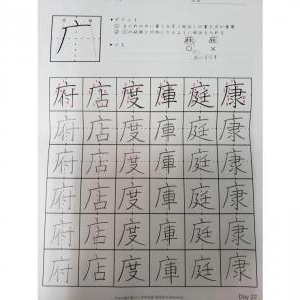 广
•ポイント
麻 麻
○ ×
•メモ
府 店 度 庫 庭 康
府 店 度 庫 庭 康
府 店 度 庫 庭 康
府 店 度 庫 庭 康
府 店 度 庫 庭 康
府 店 度 庫 庭 康
Day 22